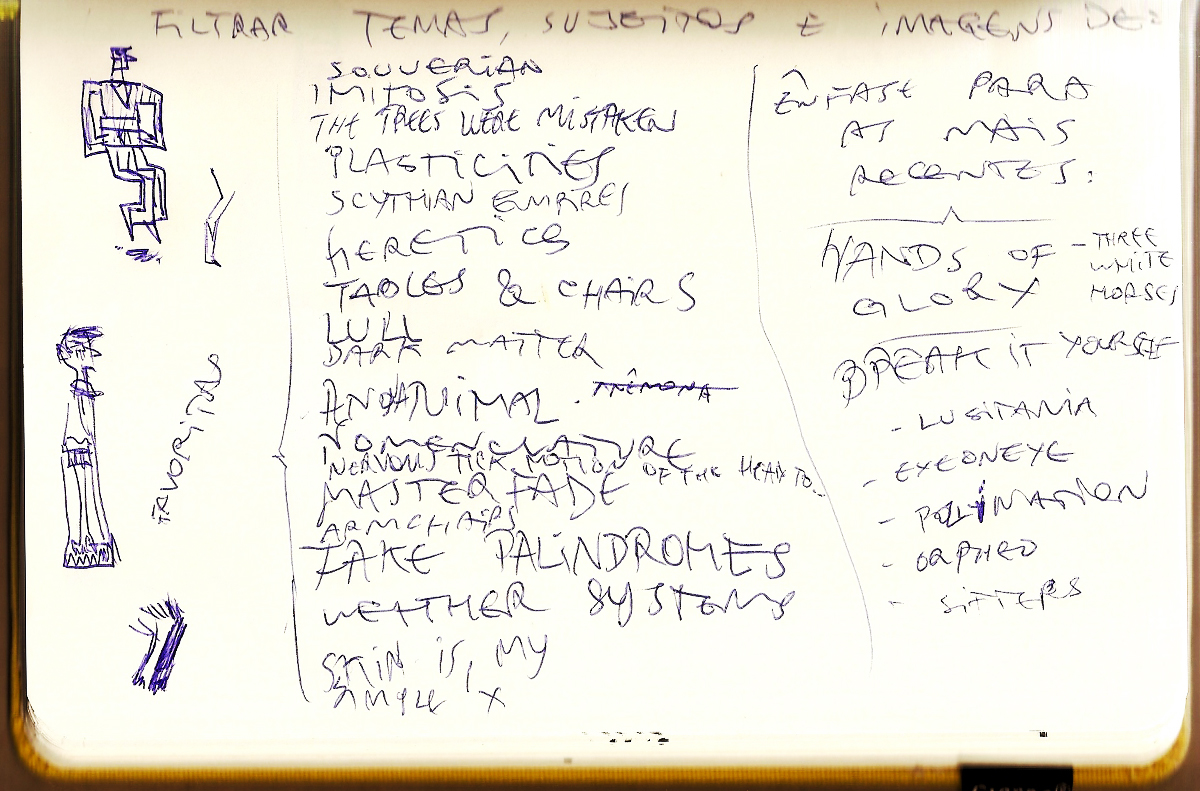 FILTRAR TEMAS, SUJEITOS E IMAGENS DE:
FAVORITAS
SOUVERIAN
IMITOSIS
THE TREES WERE MISTAKEN
PLASTICITIES
SCYTHIAN EMPIRES
HERETICS
TABLES & CHAIRS
LULL
DARK MATTER
ANONANIMAL
NOMENCLATURE
NERVOUS TICK MOTION OF THE HEAD TO...
MASTERFADE
ARMCHAIRS
FAKE PALINDROMES
WEATHER SYSTEMS
SKIN IS, MY
SIMPLE X
ÊNFASE PARA
AS MAIS
RECENTES:
HANDS OF
GLORY
- THREE
WHITE
HORSES
BREAK IT YOURSELF
- LUSITANIA
- EYEONEYE
- POLLINATION
- ORPHEO
- SIFTERS